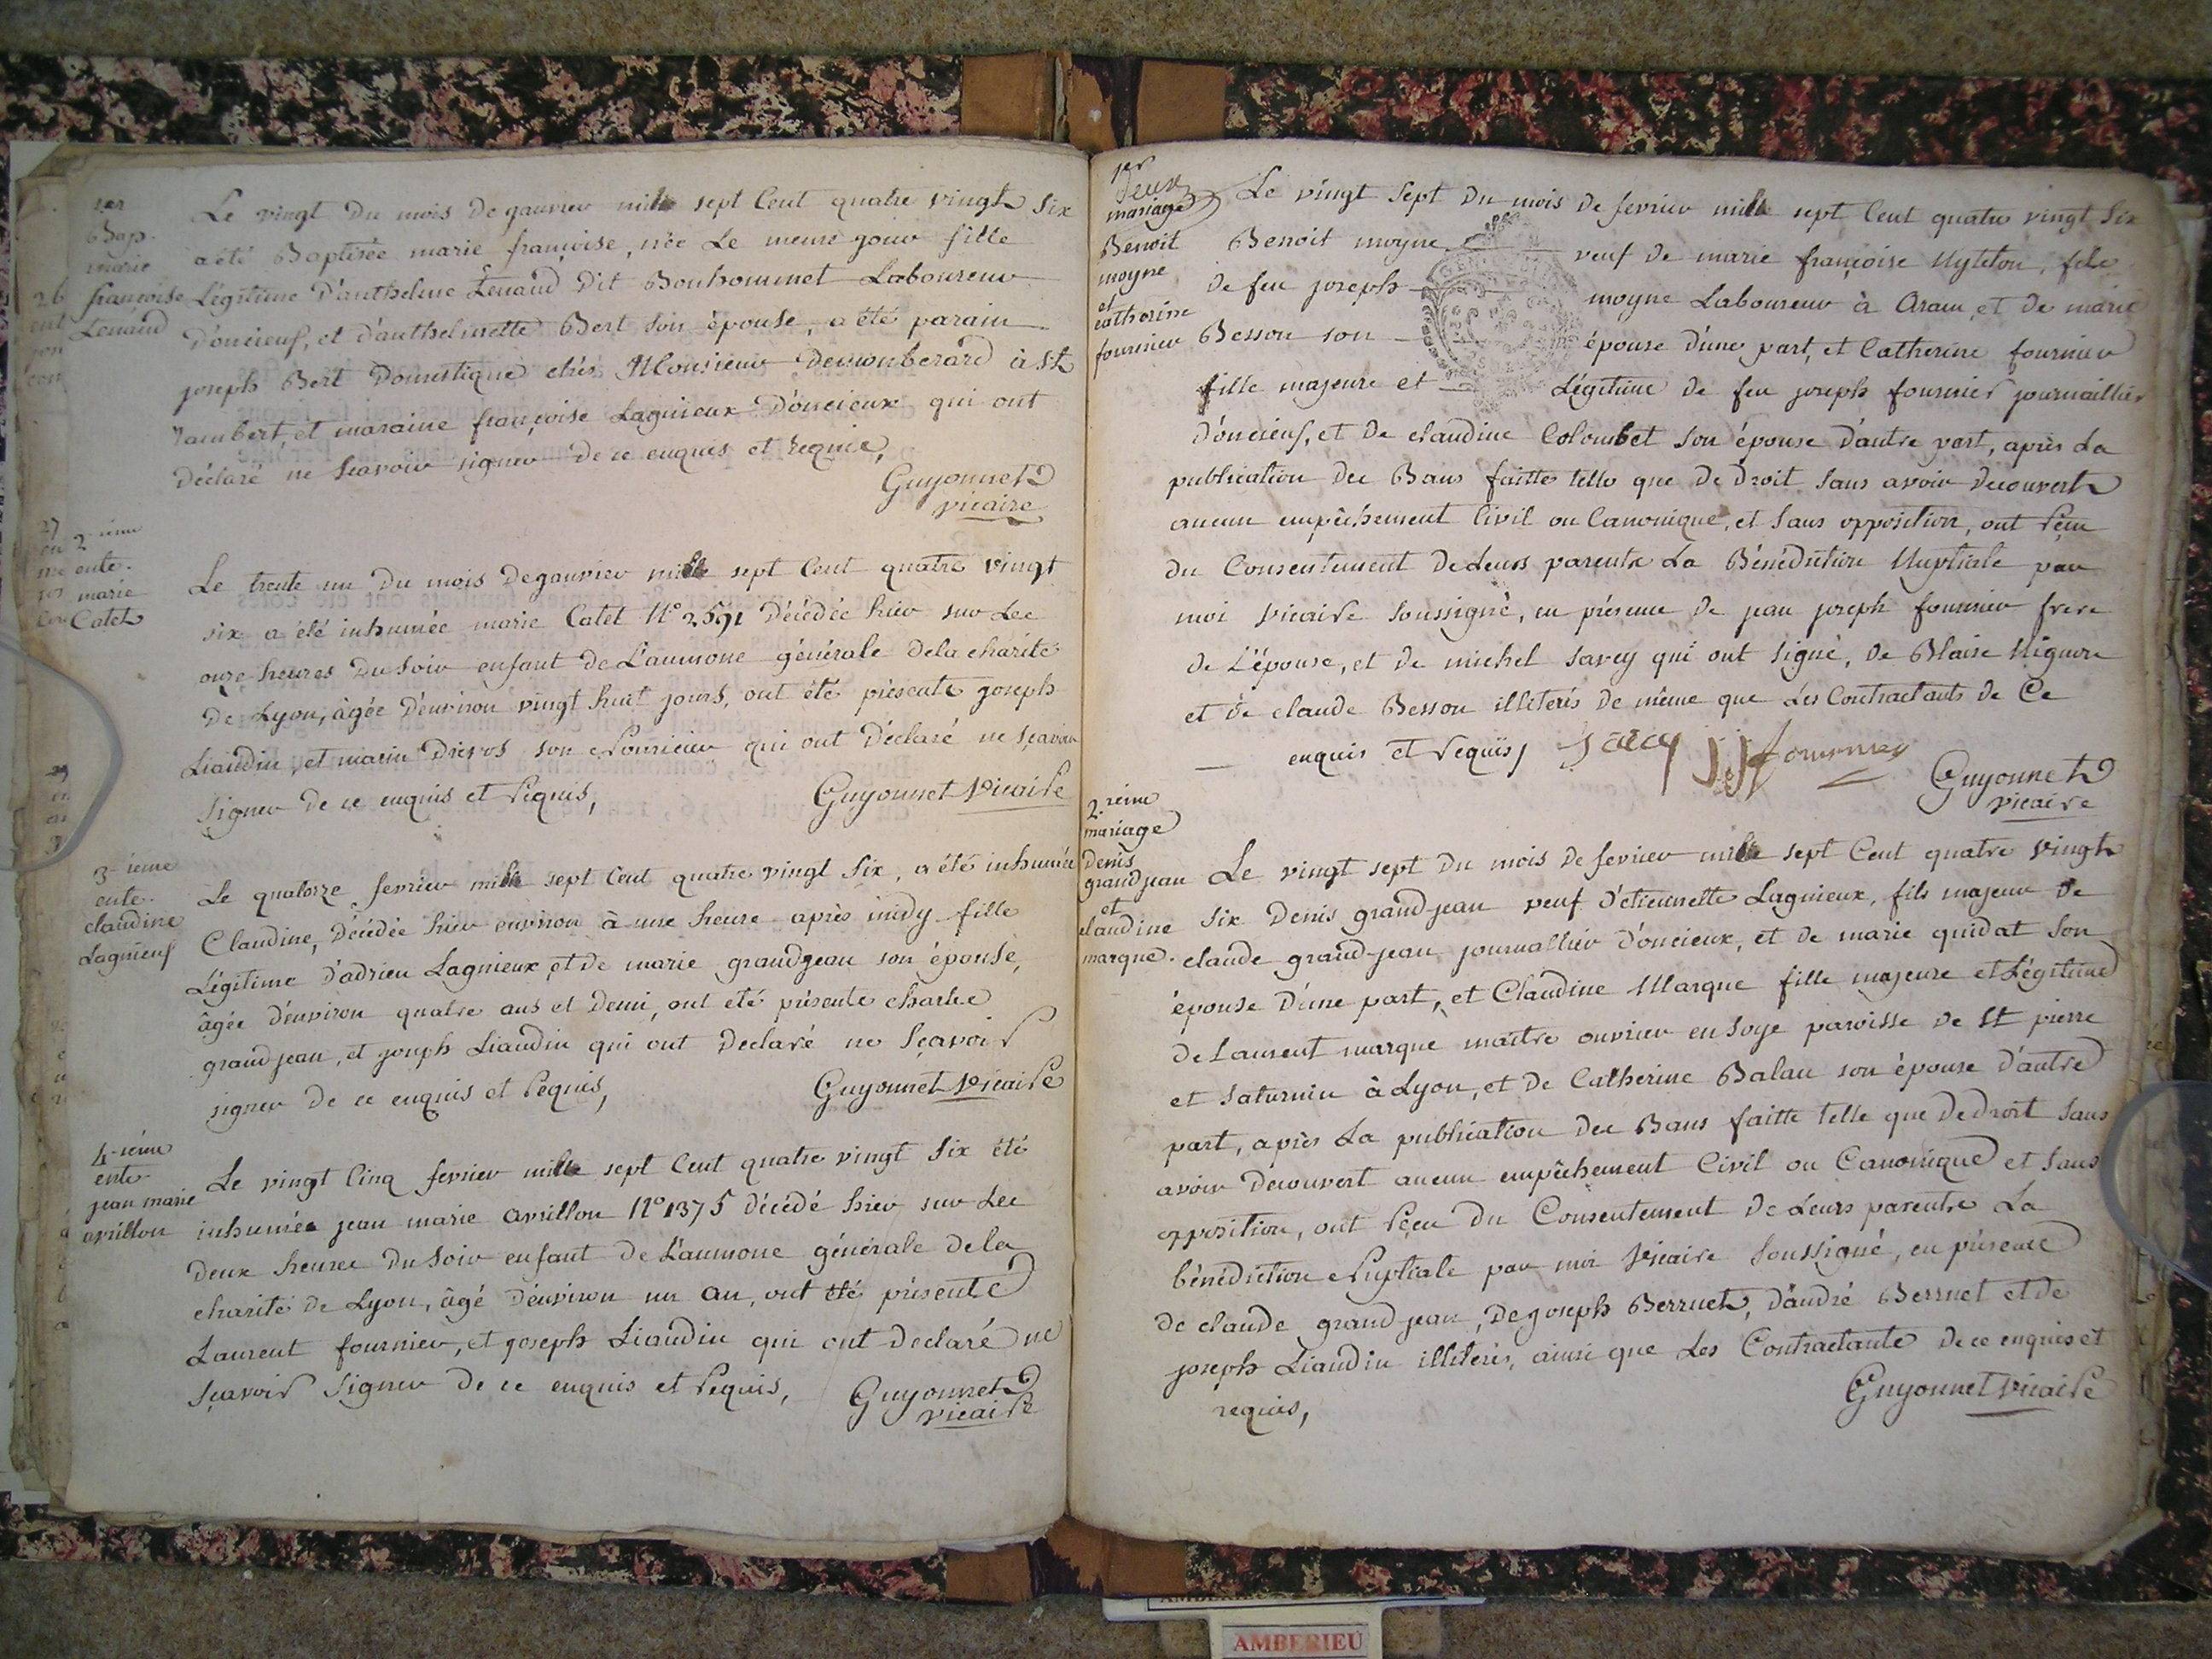 1er
Bap.
marie
françoise
Lenaud
Le vingt du mois de ganvier mille sept Cent quatre vingt Six
a été Baptisée marie françoise, née Le meme gour fille
Légitime D'anthelme Lenaud Dit Bonhommet Laboureur
D'oncieuf, et d'anthelmette Bert son épouse, a été parain
joseph Bert Domestique chés Monsieur Demonberard à St
rambert, et maraine françoise Lagnieux D'oncieux qui ont
Déclaré ne Sçavoir signer de ce enquis et requis,
Guyonnet
vicaire
2-ième
ente.
marie
Catet
Le trente un Du mois de ganvier mille sept Cent quatre vingt
six a été inhumée marie Catet N° 2591 Décédée hier sur Les
onze heures Du soir enfant de L'aumone générale dela charité
De Lyon, âgée D'environ vingt huit jours, ont été présents joseph
Liaudin, et marin son Nouricier qui ont Déclaré ne sçavoir
signer de ce enquis et requis,
Guyonnet vicaire
3-ieme
ente.
claudine
Lagnieuf
Le quatorze fevrier mille sept Cent quatre vingt Six, a été inhumée
Claudine, Décédée hier environ à une heure après midy fille
Légitime d'adrien Lagnieux, et de marie grandgean son épouse,
âgée D'environ quatre ans et Demi, ont eté présents charles
grandjean, et joseph Liaudin qui ont Declaré ne Sçavoir
signer De ce enquis et requis,
Guyonnet vicaire
4-iéme
ente
jean marie
avrillon
Le vingt Cinq fevrier mille sept Cent quatre vingt Six été
inhumée jean marie avrillon N° 1375 décédé hier sur Les
Deux heures Du Soir enfant De L'aumone générale dela
charité de Lyon, âgé D'environ un an, ont été présents
Laurent fournier, et joseph Liaudin qui ont declaré ne
sçavoir signer De ce enquis et requis,
Guyonnet
vicaire
1er
Deux
mariage
Benoit
moyne
et
catherine
fournier
Le vingt Sept du mois de fevrier mille sept Cent quatre vingt Six
Benoit moyne veuf De marie françoise , fils
de feu joseph moyne Laboureur à aran, et de marie
Besson son épouse D'une part, et Catherine fournier
fille majeure et Légitime de feu joseph fournier journaillier
D'oncieuf, et De claudine Colombet son épouse D'autre part, après La
publication des Bans faitte telle que De Droit sans avoir decouvert
aucun empêchement Civil ou Canonique, et sans opposition, ont reçu
du Consentement De Leurs parents La Bénédiction Nuptiale par
moi vicaire soussigné, en présence De jean joseph fournier frere
de L'épouse, et De michel savey qui ont signé, de Blaise
et de claude Besson illiterés de même que Les Contractants de Ce
enquis et requis, Savey jjfournier
Guyonnet
vicaire
2-iéme
mariage
Denis
grandjean
et
claudine
marque.
Le vingt sept Du mois de fevrier mille sept Cent quatre vingt
Six Denis grandjean veuf d'etiennette Lagnieux, fils majeur de
claude grandjean journallier D'oncieux, et De marie quidat Son
épouse D'une part, et Claudine Marque fille majeure et Légitime
De Laurent marque maître ouvrier en soye paroisse de St pierre
et saturnin à Lyon, et de Catherine Balan son épouse D'autre
part, après La publication des Bans faitte telle que De droit Sans
avoir Decouvert aucun empêchement Civil ou Canonique et Sans
opposition, ont reçu du Consentement De Leurs parents La
bénédiction Nuptiale par moi Vicaire Soussigné, en présence
De claude grandjean, De joseph Berruet, D'andré Berruet et de
joseph Liaudin illiterés, ainsi que Les Contractants de ce enquis et
requis,
Guyonnet vicaire
AMBERIEU